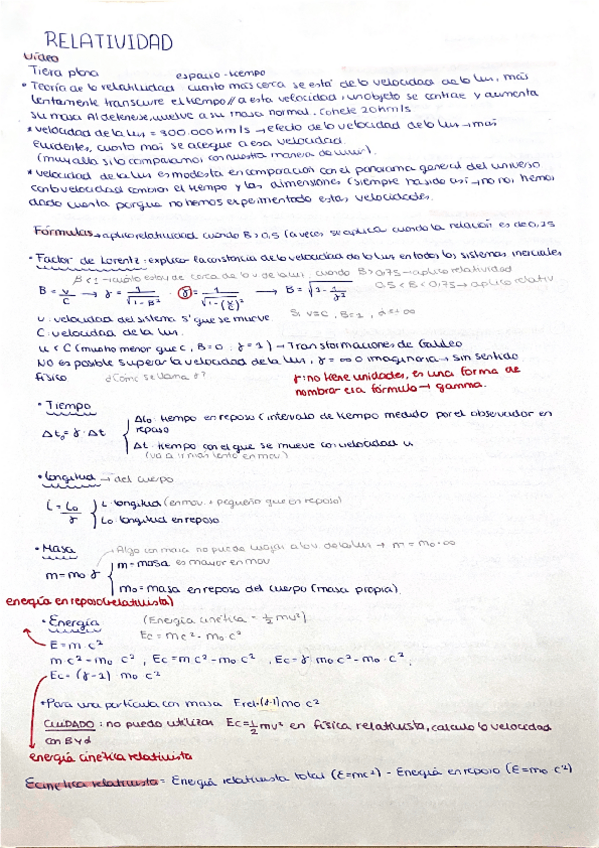 RELATIVIDAD
Vídeo
Tierra plana espacio-tiempo
• Teoría de la relatividad cuanto más cerca se está de la velocidad de la luz, más
lentamente transcurre el tiempo // a esta velocidad, un objeto se contrae y aumenta
su masa. Al detenerse, vuelve a su masa normal. Cohete 20km/s
* velocidad de la luz = 300.000km/s → efecto de la velocidad de la luz → más
evidentes, cuanto más se acerque a esa velocidad.
(muy alta si lo comparamos con nuestra manera de vivir).
* velocidad de la luz es modesta en comparación con el panorama general del universo
con la velocidad cambian el tiempo y las dimensiones (siempre ha sido así → no nos hemos
dado cuenta porque no hemos experimentado estas velocidades.
Fórmulas → aplico relatividad cuando B > 0,5 (a veces se aplica cuando la relación es de 0,25
• Factor de Lorentz: explicar la constancia de la velocidad de la luz en todos los sistemas inerciales
B < 1 → cuánto estoy de cerca de la v de la luz. cuando B > 0,75 → aplico relatividad
B = v/c → γ = 1/√(1-B²) . γ = 1/√(1-(v/c)²) → B = √(1-1/γ²) 0,5 < B < 0,75 → aplico relativ
v: velocidad del sistema S' que se mueve Si v=c, B=1, γ=∞
C: velocidad de la luz.
u < C (mucho menor que c, B=0, γ=1) → Transformaciones de Galileo
NO es posible superar la velocidad de la luz, γ = ∞ o imaginaria → sin sentido
físico ¿Cómo se llama γ?
γ: no tiene unidades, es una forma de
nombrar esa fórmula → gamma.
• Tiempo
Δt₀ = γ · Δt
Δt₀: tiempo en reposo (intervalo de tiempo medido por el observador en
reposo
Δt: tiempo con el que se mueve con velocidad u
(va a ir más lento en mov)
• Longitud → del cuerpo
L = L₀/γ
L: longitud (en mov. + pequeño que en reposo)
L₀ longitud en reposo
• Masa → Algo con masa no puede viajar a la v. de la luz → m = m₀·∞
m = m₀ γ
m = masa es mayor en mov
m₀ = masa en reposo del cuerpo (masa propia).
energía en reposo (relativista)
• Energía (Energía cinética = ½ mv²)
Ec = mc² - m₀ c²
E = m · c²
m c² - m₀ c², Ec = m c² - m₀ c², Ec = γ m₀ c² - m₀ c².
Ec = (γ-1) m₀ c²
• Para una partícula con masa Erel = (γ-1) m₀ c²
CUIDADO: no puedo utilizar Ec = ½ mv² en física relativista, calculo la velocidad
con B y γ
energía cinética relativista
Ecinética relativista = Energía relativista total (E=mc²) - Energía en reposo (E=m₀ c²)